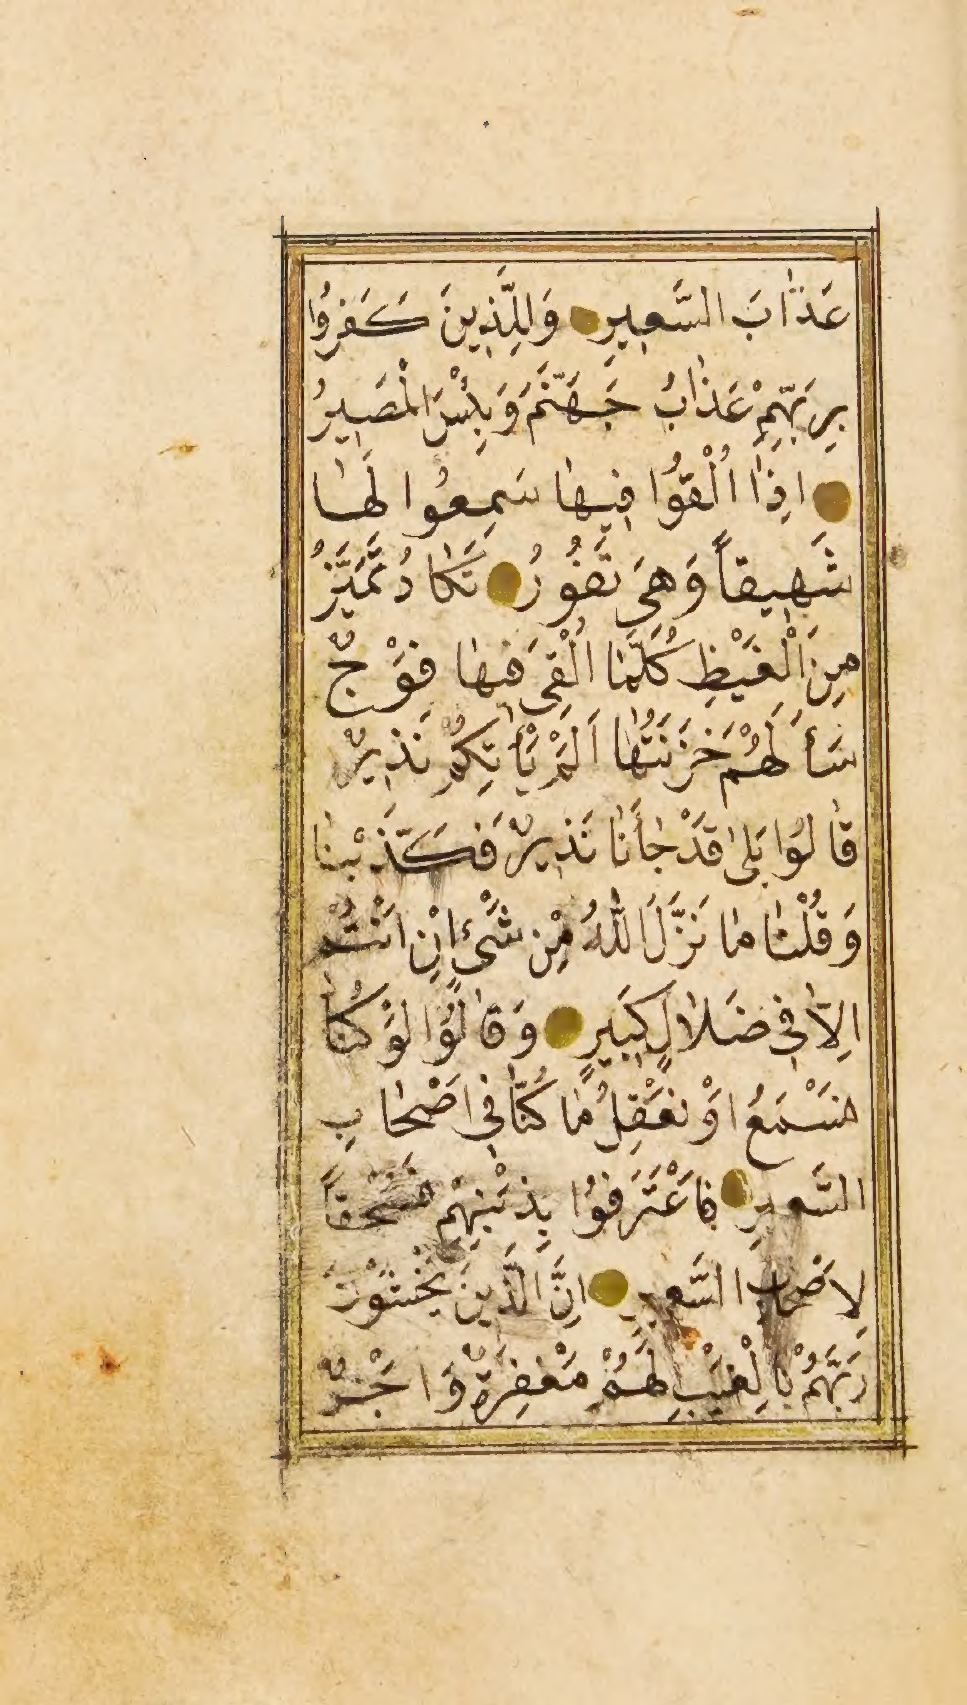 عَذَابَ السَّعِيرِ وَلِلَّذِينَ كَفَرُوا
بِرَبِّهِمْ عَذَابُ جَهَنَّمَ وَبِئْسَ الْمَصِيرُ
اِذَا اُلْقُوا فِيهَا سَمِعُوا لَهَا
شَهِيقاً وَهِىَ تَفُورُ تَكَادُ تَمَيَّزُ
مِنَ الْغَيْظِ كُلَّمَا اُلْقِىَ فِيهَا فَوْجٌ
سَأَلَهُمْ خَزَنَتُهَا اَلَمْ يَأْتِكُمْ نَذِيرٌ
قَالُوا بَلٰى قَدْ جَاۤءَنَا نَذِيرٌ فَكَذَّبْنَا
وَقُلْنَا مَا نَزَّلَ اللّٰهُ مِنْ شَىْءٍ اِنْ اَنْتُمْ
اِلَّا فِى ضَلَالٍ كَبِيرٍ وَقَالُوا لَوْ كُنَّا
نَسْمَعُ اَوْ نَعْقِلُ مَا كُنَّا فِى اَصْحَابِ
السَّعِيرِ فَاعْتَرَفُوا بِذَنْبِهِمْ فَسُحْقاً
لِاَصْحَابِ السَّعِيرِ اِنَّ الَّذِينَ يَخْشَوْنَ
رَبَّهُمْ بِالْغَيْبِ لَهُمْ مَغْفِرَةٌ وَاَجْرٌ